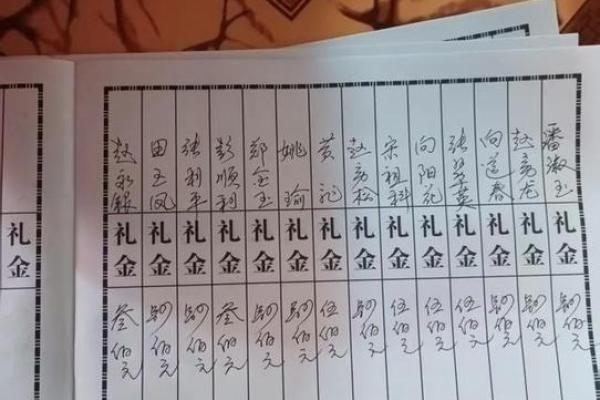 潘淑玉 礼金 贰佰元
赵彦龙 礼金 贰佰元
向道春 礼金 贰佰元
张英 礼金 伍佰元
向阳花 礼金 伍佰元
宋祖科 礼金 伍佰元
赵彦松 礼金 贰佰元
黄 礼金 伍佰元
姚瑜 礼金 贰佰元
郑金玉 礼金 贰佰元
彭顺利 礼金 叁佰元
张利平 礼金 贰佰元
田玉凤 礼金 贰佰元
赵永银 礼金 叁佰元
礼金